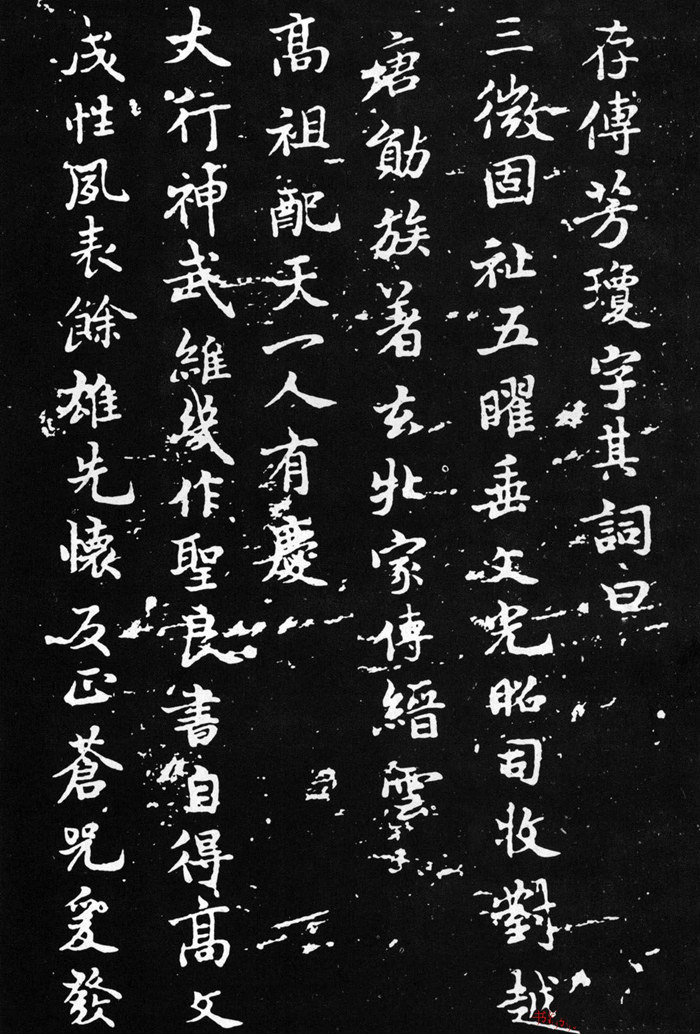 存傳芳瓊字其詞曰
三微固祉五曜垂文光昭司牧對越
唐勛族著玄牝家傳縉雲
高祖配天一人有慶
大行神武維幾作聖良書自得高文
成性夙表餘雄先懷反正蒼兕爰發